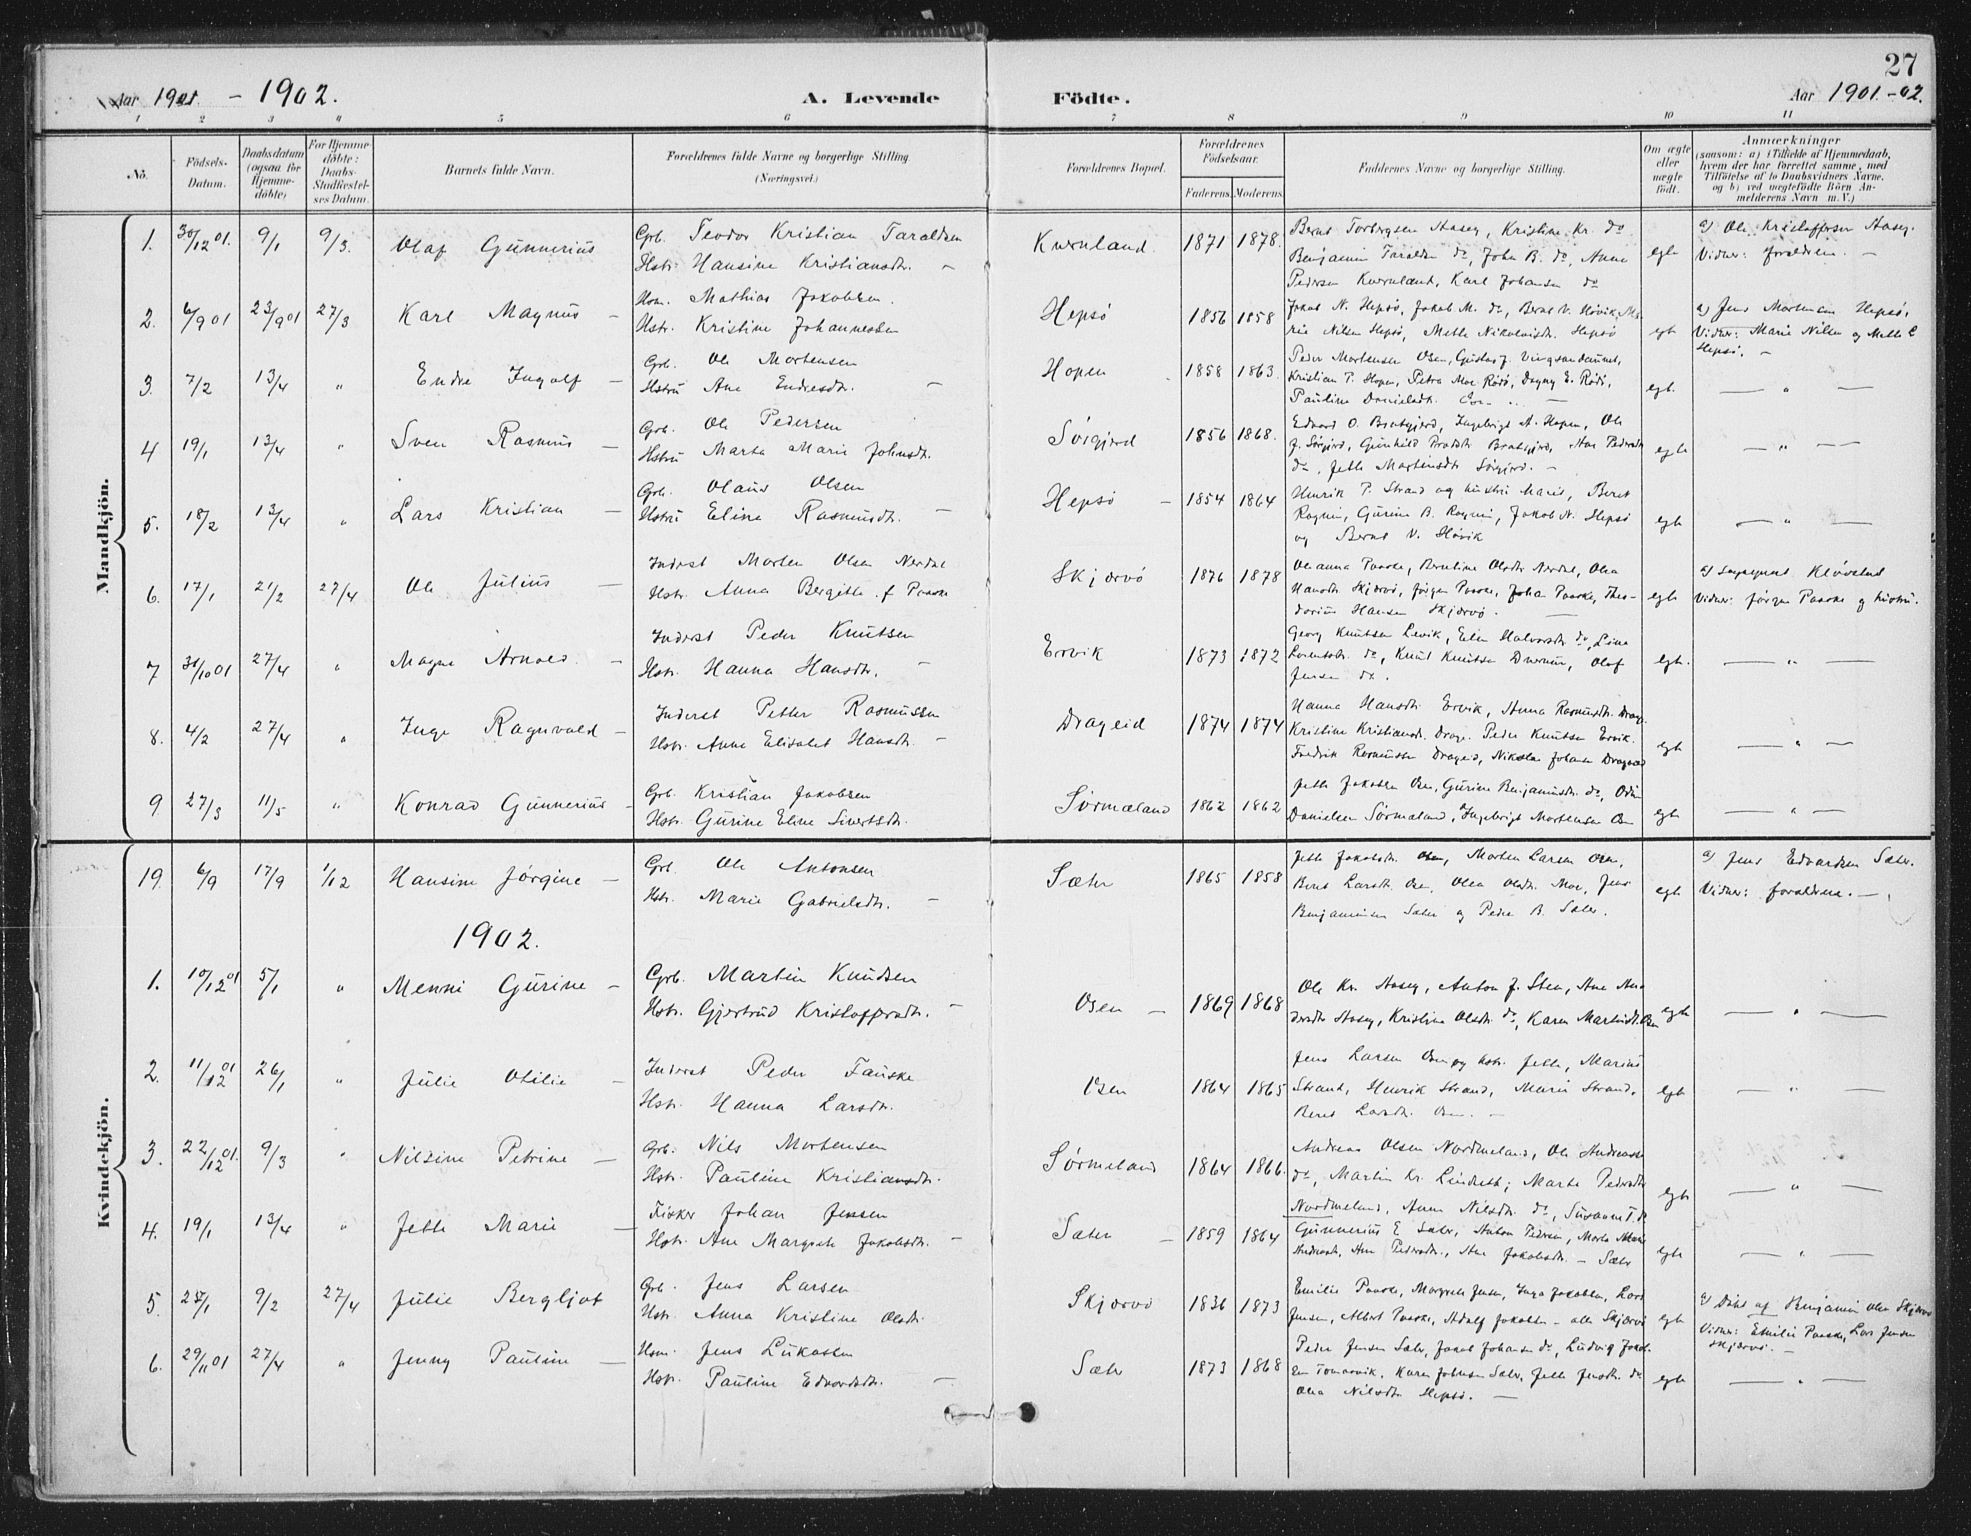 27
Aar 1901 - 1902.
A. Levende
Födte.
Aar 1901-02.
1 2 3 4 5 6 7 8 9 10 11
No.
Födsels-
Datum.
Daabsdatum
(ogsaa for
Hjemme-
döbte)
For Hjemme-
döbte:
Daabs-
Stadfæstel-
ses Datum.
Barnets fulde Navn.
Forældrenes fulde Navne og borgerlige Stilling
(Næringsvei.)
Forældrenes Bopæl.
Forældrenes
Födselsaar.
Faderens Moderens
Faddernes Navne og borgerlige Stilling.
Om ægte
eller
uægte
födt.
Anmærkninger
(saasom: a) i Tilfælde af Hjemmedaab,
hvem der har forrettet samme, med
Tilföielse af to Daabsvidners Navne,
og b) ved uægtefödte Börn An-
melderens Navn m. V.)
Mandkjön.
1. 30/12 01. 9/1 9/3. Olaf Gunnerius
Grb. Teodor Kristian Taraldsen
Hstr. Hansine Kristiansdtr. -
Kvernland. 1871 1878.
Bernt Torbergsen Aasey, Kristine Kr. do
Benjamin Taraldsen do, Johan B. do, Anne
Pedersen Kvernland, Karl Johansen do
egte
a) Ole Kristoffersen Aasey.
Vidner: forældrene. -
2. 6/9 01 23/9 01 27/3 Karl Magnus -
Hsm. Mathias Jakobsen.
Hstr. Kristine Johannesdtr
Hepsö 1856 1858
Jakob N. Hepsö, Jakob M. do, Bernt V. Hövik, Ma-
rie Nilsen Hepsö, Mette Nikolaisdtr. Hepsö
egt
a) Jens Mortensen Hepsö,
Vidner: Marie Nilsen og Mette C
Hepsö. -
3. 7/2 13/4 " Endre Ingolf -
Grb. Ole Mortensen
Hstru Ane Endresdtr. -
Hopen 1858 1863.
Peder Mortensen Osen, Gustav J. Vingsandaunet,
Kristian P. Hopen, Petra Moe Rödö, Dagny E. Rödö,
Pauline Danielsdtr.
egt.
- " -
4 19/1 13/4 " Sven Rasmus -
Grb. Ole Pedersen
Hstru Marta Marie Johnsdtr.
Sörgjerd 1856 1868.
Edvard O. Bratgjerd, Ingebrigt A. Hopen, Ole
J. Sörgjerd, Gunhild Bratgjerd, Ane Pedersdtr
do, Jette Martinsdtr Sörgjerd. -
egte
- " -
5. 18/2 13/4 " Lars Kristian -
Grb. Olaus Olsen
Hstru Eline Rasmusdtr. -
Hepsö - 1854 1864
Henrik P. Strand og hustru Marie, Beret
Ragnin, Gurine B. Ragnin, Jakob N. Hepsö
og Bernt V. Hövik
egt
- " -
6. 17/1 21/2 27/4 Ole Julius -
Inderst Morten Olsen Nerdal
Hstr. Anna Bergitte f Paaske
Skjærvö 1876 1878
Oleanna Paaske, Berntine Olsdtr Nerdal, Olea
Hansdtr Skjervö, Jörgen Paaske, Johan Paaske, Theo-
dorius Hansen Skjærvö. -
egte
Vidner: Jörgen Paaske og hustru.
7 30/10 01 27/4 " Magne Arnold. -
Inderst Peder Knutsen
Hstr. Hanna Hansdtr. -
Ervik 1873 1872
Georg Knutsen Levik, Elen Halvorsdtr do, Line
Lorentsdtr. do, Knut Knutsen Duerum, Olaf
Jensen do.
egt.
- " -
8. 4/2 27/4 " Inge Ragnvald -
Inderst Petter Rasmussen
Hstr. Anne Elisabet Hansdtr. -
Drageid 1874 1874
Hanna Hansdtr Ervik, Anna Rasmusdtr. Drag.
Kristine Kristiansd. Drage. Peder Knutsen Ervik.
Fredrik Rasmussen Drageid, Nikolai Johansen Drageid
egt
- " -
9 27/3 11/5 " Konrad Gunnerius -
Grb. Kristian Jakobsen
Hstr. Gurine Eline Sivertsdtr.
Sörmæland 1862 1862
Jette Jakobsen Osen, Gurine Benjaminsdtr. do, Odin
Danielsen Sörmæland, Ingebrigt Mortensen Osen
egt
- " -
Kvindekjön.
19. 6/9 17/9 1/12 Hansine Jörgine -
Grb. Ole Antonsen
Hstr. Marie Gabrielsdtr. -
Sæter 1865 1858
Jette Jakobsdtr. Osen, Morten Larsen Osen,
Beret Larsdtr. Osen, Olea Olsdtr. Moe, Jens
Benjaminsen Sæter og Peder B. Sæter.
egt
a) Jens Edvardsen Sæter.
Vidner: forældrene. -
1902.
1. 10/12 01 5/1 " Menni Gurine -
Grb. Martin Knudsen
Hstr. Gjertrud Kristoffersdtr. -
Osen - 1869 1868
Ole Kr. Aasey, Anton J. Sten, Ane An-
dersdtr Aasey, Kristine Olsdtr. do, Karen Martinsdtr. Osen
egte
- " -
2. 11/12 01 26/1 " Julie Otilie -
Inderst Peder Fauske
Hstr. Hanna Larsdtr.
Osen 1864 1865
Jens Larsen Osen og hstr. Jette, Marius
Strand, Henrik Strand, Marie Strand,
Beret Larsdtr. Osen. -
egt
- " -
3. 22/12 01. 9/3 " Nilsine Petrine -
Grb. Nils Mortensen
Hstr. Pauline Kristiansdtr.
Sörmeland 1864 1866.
Andreas Olsen Nordmeland, Ole Andreassen
do, Martin Kr. Lindseth, Marte Pedersdtr
Nordmeland, Anne Nilsdtr. do, Susanne T. do
egt
- " -
4. 19/1 13/4 " Jette Marie -
Fisker Johan Jensen
Hstr. Ane Margrete Jakobsdtr. -
Sæter - 1859 1864
Gunnerius E Sæter, Anton Pedersen, Marta Marie
Andreasd., Ane Pedersdtr., Ane Jakobsdtr. - Sæter
egt
- " -
5. 25/1 9/2 27/4 Julie Bergljot
Grb. Jens Larsen
Hstr. Anna Kristine Olsdtr.
Skjærvö 1836 1873
Emilie Paaske, Margrete Jensen, Inga Jakobsen, Lars
Jensen, Albert Paaske, Adolf Jakobsen - alle Skjærvö
egt
a) Döbt af Benjamin Olsen Skjærvö
Vidner: Emilie Paaske, Lars Jensen
Skjærvö. -
6. 29/11 01 27/4 " Jenny Pauline -
Hsm. Jens Lukassen
Hstr. Pauline Edvardsdtr. -
Sæter 1873 1868
Peder Jensen Sæter, Jakob Johansen do, Ludvig Jakob-
sen Tomasvik, Karen Johnsen Sæter, Jette Jensdtr. do
Olea Nilsdtr Hepsö. -
egte
- " -